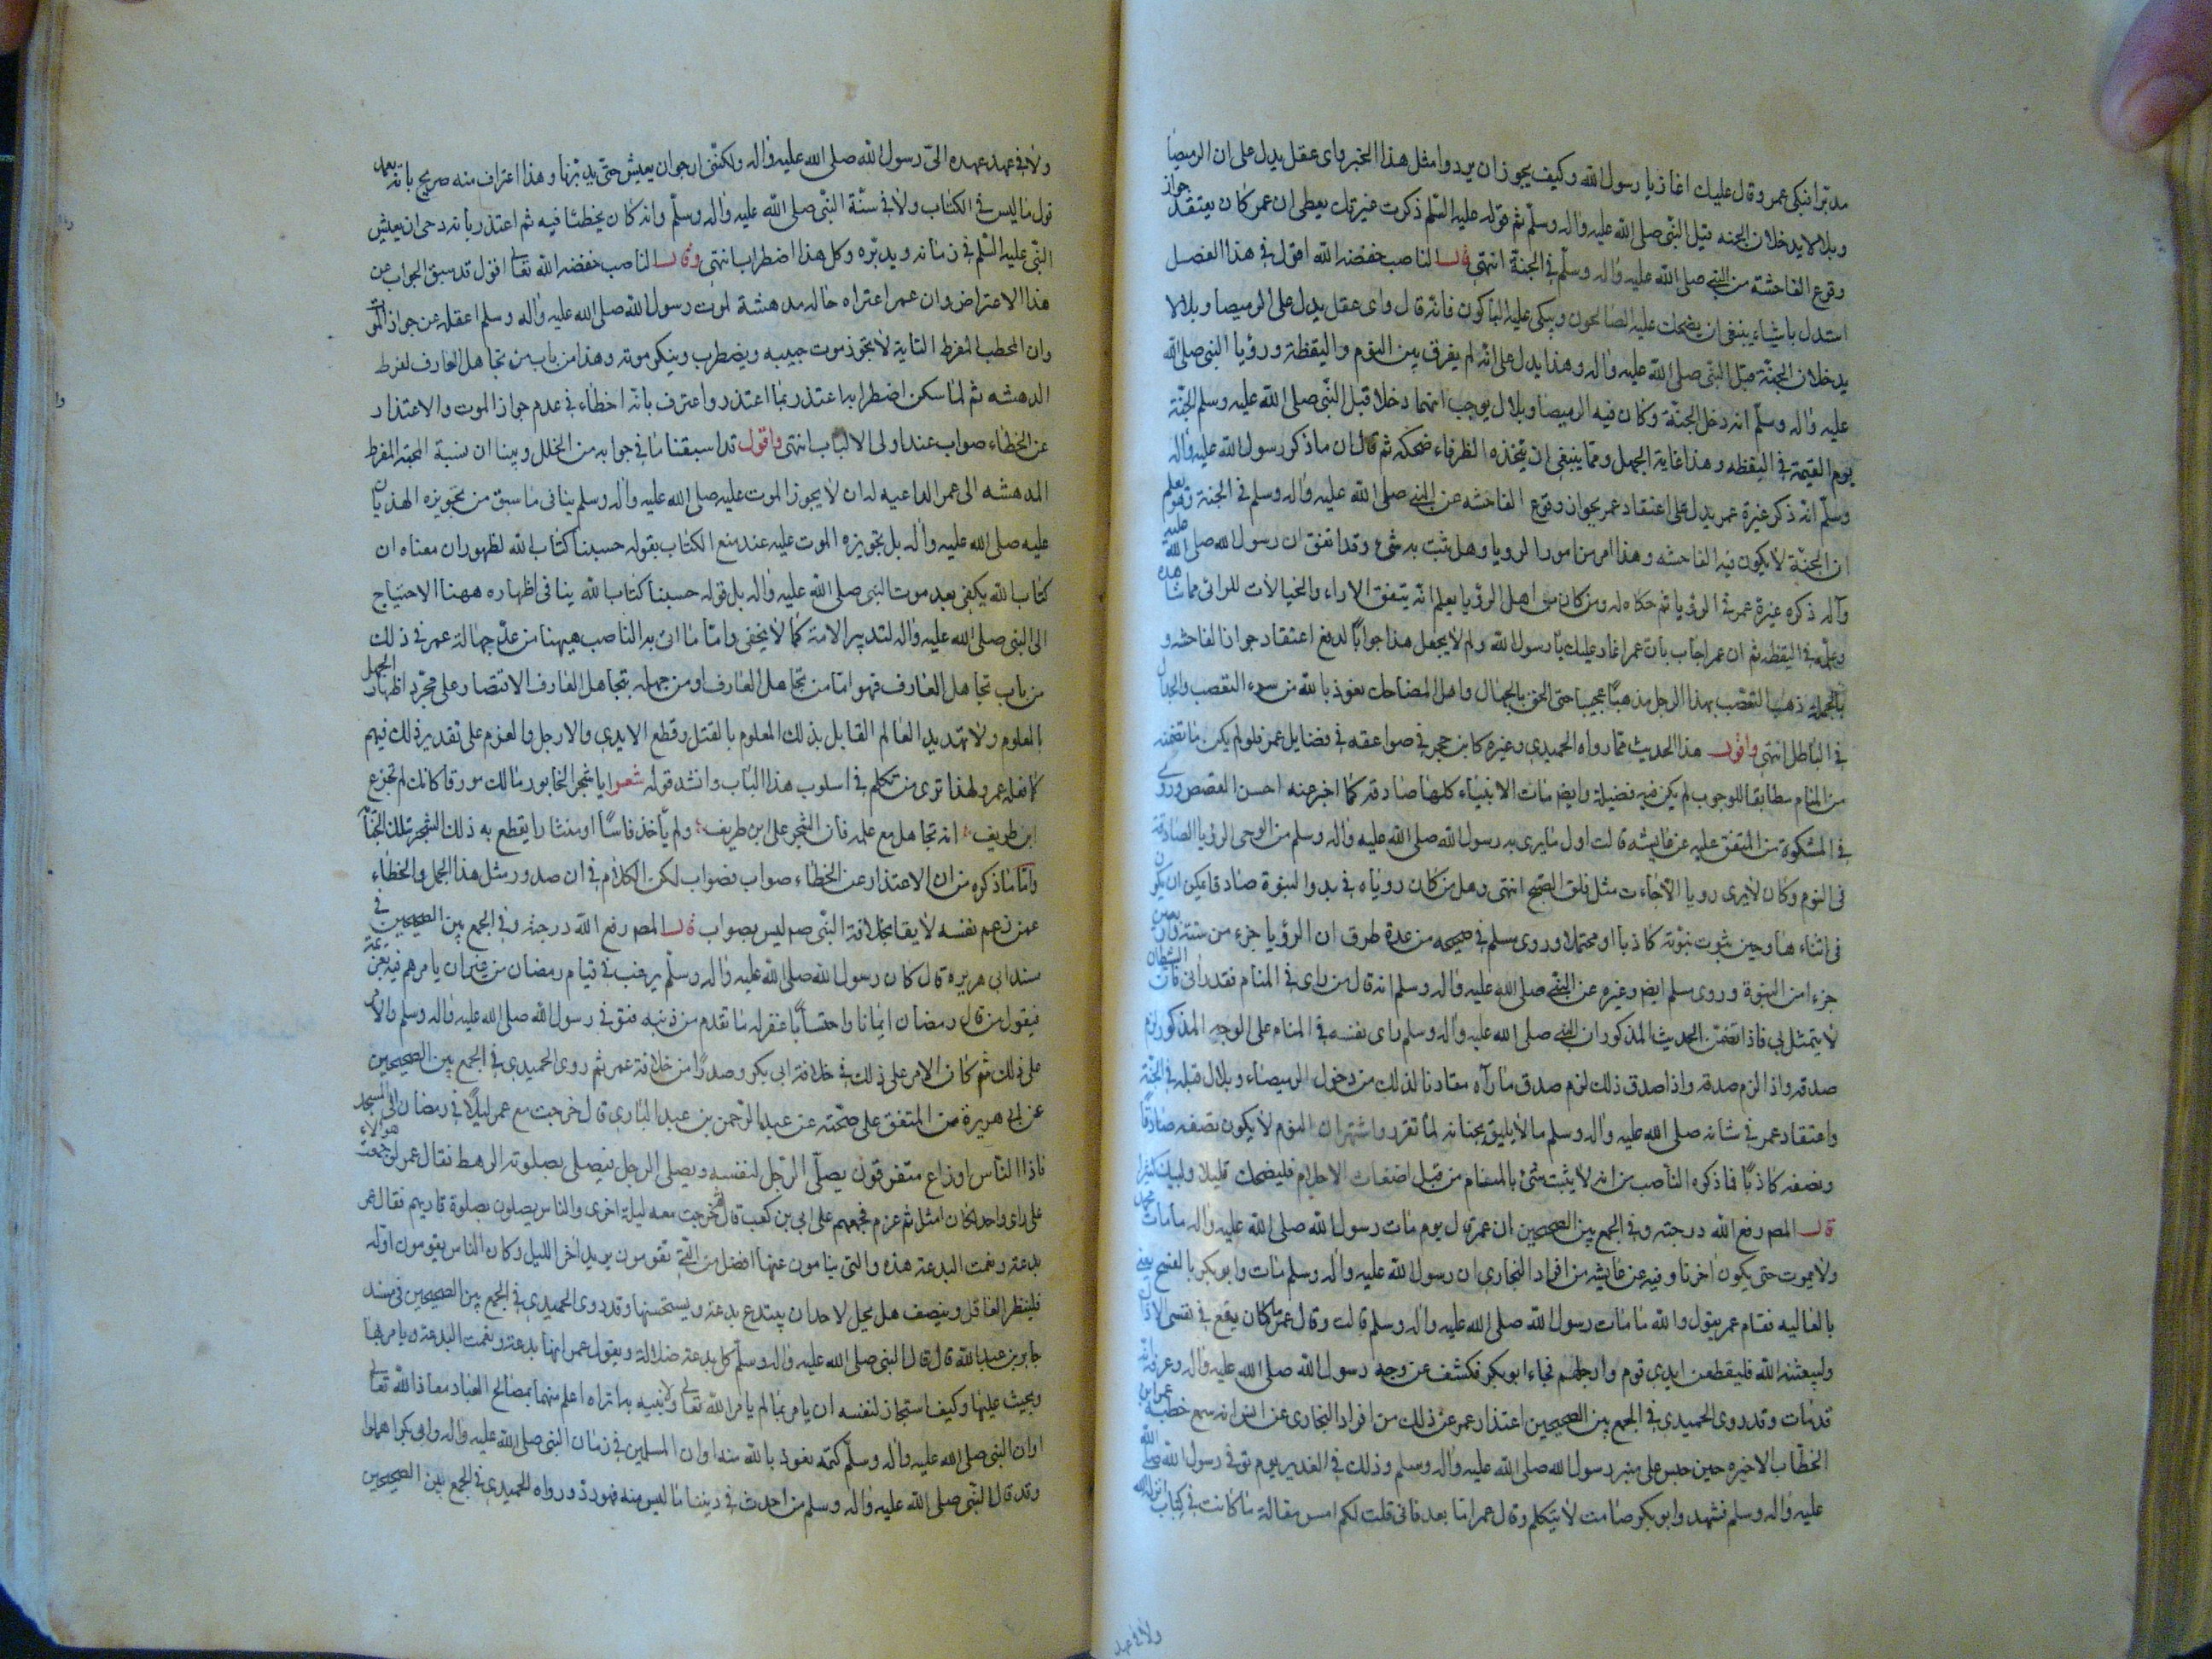 مدبرا فبكى عمر وقال عليك اغار يا رسول الله وكيف يجوز ان يردوا مثل هذا الخبر واى عقل يدل على ان الرميصا
وبلالا يدخلان الجنه قبل النبّى صلى الله عليه واله وسلّم ثم قوله عليه السّلم ذكرت غيرتك يعطى ان عمر كان يعتقد جواز
وقوع الفاحشة من النبى صلى الله عليه واله وسلّم فى الجنّة انتهى قال الناصب خفضه الله اقول فى هذا الفصل
استدل باشياء ينبغى ان يضحك عليه الضاحكون ويبكى عليه الباكون فانه قال واى عقل يدل على الرميصا وبلالا
يدخلان الجنّة قبل النبّى صلى الله عليه واله وهذا يدل على انّه لم يفرق بين النوم واليقظة ورؤيا النبى صلى الله
عليه واله وسلّم انه دخل الجنّة وكان فيه الرميصا وبلال يوجب انهما دخلا قبل النبّى صلى الله عليه وسلم الجنّة
يوم القيمة فى اليقظه وهذا غاية الجهل ومما ينبغى ان يتخذه الظرفاء ضحكه ثم قال ان ما ذكر رسول الله عليه واله
وسلّم انه ذكر غيرة عمر يدل على اعتقاد عمر بجواز وقوع الفاحشه عن النبى صلى الله عليه واله وسلم فى الجنة وهو يعلم
ان الجنّة لا يكون فيه الفاحشه وهذا امر من امور الرويا وهل يثبت به شئ وقد اتفق ان رسول الله صلى الله عليه
وآله ذكره غيرة عمر فى الرؤيا ثم حكاه له ومن كان من اهل الرؤيا يعلم انّه يتفق الاراء والخيالات للرائى مما شاهده
وعلمه فى اليقظه ثم ان عمر اجاب بان عمر اغار عليك يا رسول الله ولم لا يجعل هذا جوابًا لدفع اعتقاد جواز الفاحشه و
بالجمله ذهب التعصّب بهذا الرجل مذهبًا عجيبا حتى الحق بالجهال واهل المضاحك نعوذ بالله من سوء التعصب والجدال
فى الباطل انتهى واقول هذا الحديث مما رواه الحميدى وغيره كابن حجر فى صواعقه فى فضايل عمر فلو لم يكن ما تضمنه
من المنام مطابقا للوجوب لم يكن فيه فضيلة وايض منات الانبياء كلها صادقه كما اخبر عنه احسن القصص وروى
فى المشكوة من المتفق عليه عن عايشه قالت اول ما يرى به رسول الله صلى الله عليه واله وسلم من الوحى الرؤيا الصادقة
فى النوم وكان لا يرى رويا الا جاءت مثل فلق الصّبح انتهى وهل من كان روياه فى بدو النبوة صادقا يمكن ان يكون
فى اثناءها وحين ثبوت نبوّته كاذبا او محتملا وروى مسلم فى صحيحه من عدة طرق ان الرؤيا جزء من ستة واربعين
جزءا من النبوة وروى مسلم ايض وغيره عن النبى صلى الله عليه واله وسلم انه قال من راى فى المنام فقد رأنى فان الشيطان
لا يتمثل بى فاذا تضمّن الحديث المذكور ان النبى صلى الله عليه واله وسلم راى نفسه فى المنام على الوجه المذكور لزم
صدقه واذا لزم صدقه واذا صدق ذلك لزم صدق ما رآه مقارنا لذلك من دخول الرميصاء وبلال قبله فى الجنّة
واعتقاد عمر فى شانه صلى الله عليه واله وسلم ما لا يليق بجنابه لما تقرر واشتهر ان النوم لا يكون نصفه صادقًا
ونصفه كاذبًا فما ذكره الناصب من انه لا يثبت شئ بالمنام من قبيل اضغاث الاحلام فليضحك قليلا وليبك كثيرا
قال المصر رفع الله درجته وفى الجمع بين الصحيحين ان عمر قال يوم مات رسول الله صلى الله عليه واله ما مات محمد
ولا يموت حتى يكون اخرنا وفيه عن عايشه من افراد البخارى ان رسول الله عليه واله وسلم مات وابو بكر بالفسح يعنى
بالعاليه فقام عمر يقول والله ما مات رسول الله صلى الله عليه واله وسلم قالت وقال عمر ما كان يقع فى نفسى الا ذاك
وليبعثنه الله فليقطعن ايدى قوم وارجلهم فجاء ابو بكر فكشف عن وجه رسول الله صلى الله عليه واله وعرفه انه
قد مات وقد روى الحميدى فى الجمع بين الصحيحين اعتذار عمر عن ذلك من افراد البخارى عن انس انه سمع خطبة عمر ابن
الخطّاب الاخيره حين جلس على منبر رسول الله صلى الله عليه واله وسلم وذلك فى الغد من يوم توفى رسول الله صلى الله
عليه واله وسلم فتشهد وابو بكر صامت لا يتكلم وقال عمر اما بعد فانى قلت لكم امس مقالة ما كانت فى كتاب انزله الله
ولا فى عهد
ولا فى عهد عهده الىّ رسول الله صلى الله عليه واله ولكنّى ارجو ان يعيش حتى يدبّرنا وهذا اعتراف منه صريح بانه تعمد
قول ما ليس فى الكتاب ولا فى سنّة النبّى صلى الله عليه واله وسلّم وانه كان يخطئا فيه ثم اعتذر بانه رجى ان يعيش
النبّى عليه السّلم فى زمانه ويدبّره وكل هذا اضطراب انتهى وقال الناصب خفضه الله تعالى اقول قد سبق الجواب عن
هذا الاعتراض وان عمر اعتراه حاله مدهشة لموت رسول الله صلى الله عليه واله وسلم اغفله عن جواز الموت
وان المحب المفرط المحبة لا يجوز موت حبيبه ويضطرب وينكر موته وهذا من باب من تجاهل العارف لفرط
الدهشه ثم لما سكن اضطرابه اعتذر بما اعتذر واعترف بانه اخطاء فى عدم جواز الموت والاعتذار
عن الخطاء صواب عند اولى الالباب انتهى واقول قد اسبقنا ما فى جوابه من الخلل وبينا ان نسبة المحبّة المفرط
المدهشه الى عمر الداعيه له ان لا يجوز الموت عليه صلى الله عليه واله وسلم ينافى ما سبق من تجويزه الهذيان
عليه صلى الله عليه واله بل تجويزه الموت عليه عند منع الكتاب بقوله حسبنا كتاب الله لظهور ان معناه ان
كتاب الله يكفى بعد موت النبى صلى الله عليه واله بل قوله حسبنا كتاب الله ينافى اظهاره ههنا الاحتياج
الى النبى صلى الله عليه واله لتدبير الامة كما لا يخفى وامّا ما اتى به الناصب هيهنا من عدّ جهالة عمر فى ذلك
من باب تجاهل العارف فهو امّا من تجاهل العارف او من جهله بتجاهل العارف الاقتصار على مجرّد اظهار الجهل
بالمعلوم ولا تهديد العالم القايل بذلك المعلوم بالقتل وقطع الايدى والارجل والعزم على تقدير ذلك فيهم
كما فعله عمر ولهذا ترى من تكلم فى اسلوب هذا الباب وانشد قوله شعر ايا شجر الخابور مالك مورقا كانك لم تجزع
ابن طريف انه تجاهل مع علمه فان الشجر على ابن طريف ولم يأخذ فاسًا او منشارا يقطع به ذلك الشجر تلك الجفاء
وامّا ما ذكره من ان الاعتذار عن الخطاء صواب فصواب لكن الكلام فى ان صدور مثل هذا الجهل والخطاء
عمن زعم نفسه لايقا بخلافة النبّى صم ليس بصواب قال المصر رفع الله درجته وفى الجمع بين الصحيحين فى
مسند ابى هريره قال كان رسول الله صلى الله عليه واله وسلّم يرغب فى قيام رمضان من غير ان يامرهم فيه بعزيمة
فيقول من قام رمضان ايمانا واحتسابًا غفر له ما تقدم من ذنبه فتوفى رسول الله صلى الله عليه واله وسلم والامر
على ذلك ثم كان الامر على ذلك فى خلافة ابى بكر وصدرًا من خلافة عمر ثم روى الحميدى فى الجمع بين الصحيحين
عن ابى هريرة من المتفق على صحّته عن عبد الرّحمن بن عبد البارى قال خرجت مع عمر ليلا فى رمضان الى المسجد
فاذا الناس اوزاع متفرقون يصلّى الرّجل لنفسه ويصلى الرجل فيصلى بصلوته الرهط فقال عمر لو جمعت هولاء
على راى واحد لكان امثل ثم عزم فجمعهم على ابى بن كعب قال ثم خرجت معه ليلة اخرى والناس يصلون بصلوة قاريهم فقال عمر
بدعة ونعمت البدعة هذه والتى ينامون عنها افضل من التّى تقومون يريد اخر الليل وكان الناس يقومون اوله
فلينظر العاقل وينصف هل يحل لاحد ان يبتدع بدعة ويستحسنها وقد روى الحميدى فى الجمع بين الصحيحين فى مسند
جابر بن عبد الله قال قال النبى صلى الله عليه واله وسلّم كل بدعة ضلالة ويقول عمر انها بدعة ونعمت البدعة ويامر بها
ويحث عليها وكيف استجاز لنفسه ان يامر بما لم يامر الله تعالى ولا نبيه بها تراه اعلم منهما بمصالح العباد معاذ الله تعالى
او ان النبى صلى الله عليه واله وسلّم كتمه نعوذ بالله منه او ان المسلمين فى زمان النبى صلى الله عليه واله وابو بكر اهملوا
وقد قال النبّى صلى الله عليه واله وسلم من احدث فى ديننا ما ليس منه فهو رد ورواه الحميدى فى الجمع بين الصحيحين